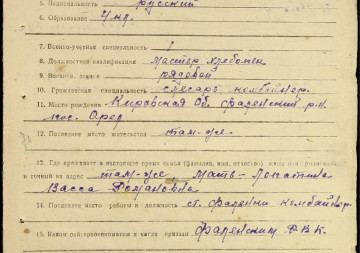 5. Национальность русский
6. Образование
7. Военно-учетная специальность 1
8. Должностная квалификация мастер
9. Воинское звание рядовой
10. Гражданская специальность слесарь комбайнер.
11. Место рождения Кировская Обл. Фаленский р-н
пос.
12. Последнее место жительства там-же.
13. Где проживает в настоящее время семья (фамилия, имя, отчество)
и точный их адрес там-же мать-
Васса Романовна
14. Последнее место работы и должность ст. Фаленки комбайнер
15. Каким райгорвоенкоматом и когда призван Фаленским РВК.